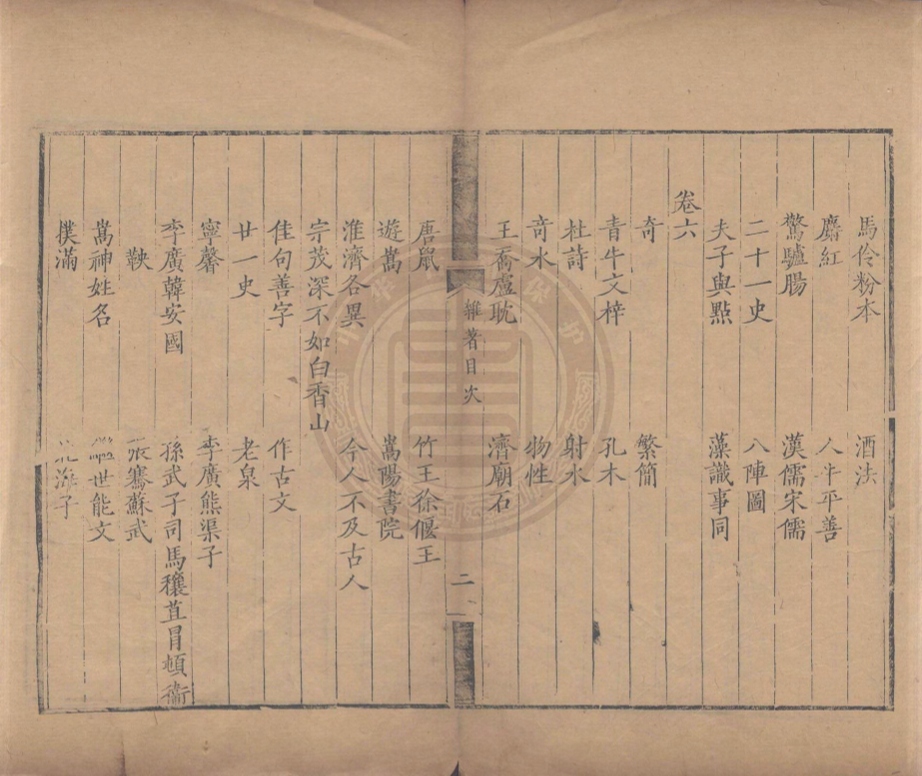 馬伶粉本　酒法
麝紅　人牛平善
驚驢腸　漢儒宋儒
二十一史　八陣圖
夫子與點　藻識事同
卷六
奇　繁簡
青牛文梓　孔木
杜詩　射水
奇水　物性
王喬盧耽　濟廟石
雜著目次　二
唐鼠　竹王徐偃王
遊嵩　嵩陽書院
淮濟各異　今人不及古人
宗茂深不如白香山
佳句善字　作古文
廿一史　老泉
寧馨　李廣熊渠子
李廣韓安國　孫武子司馬穰苴冒頓衛
鞅　張騫蘇武
嵩神姓名　繼世能文
撲滿